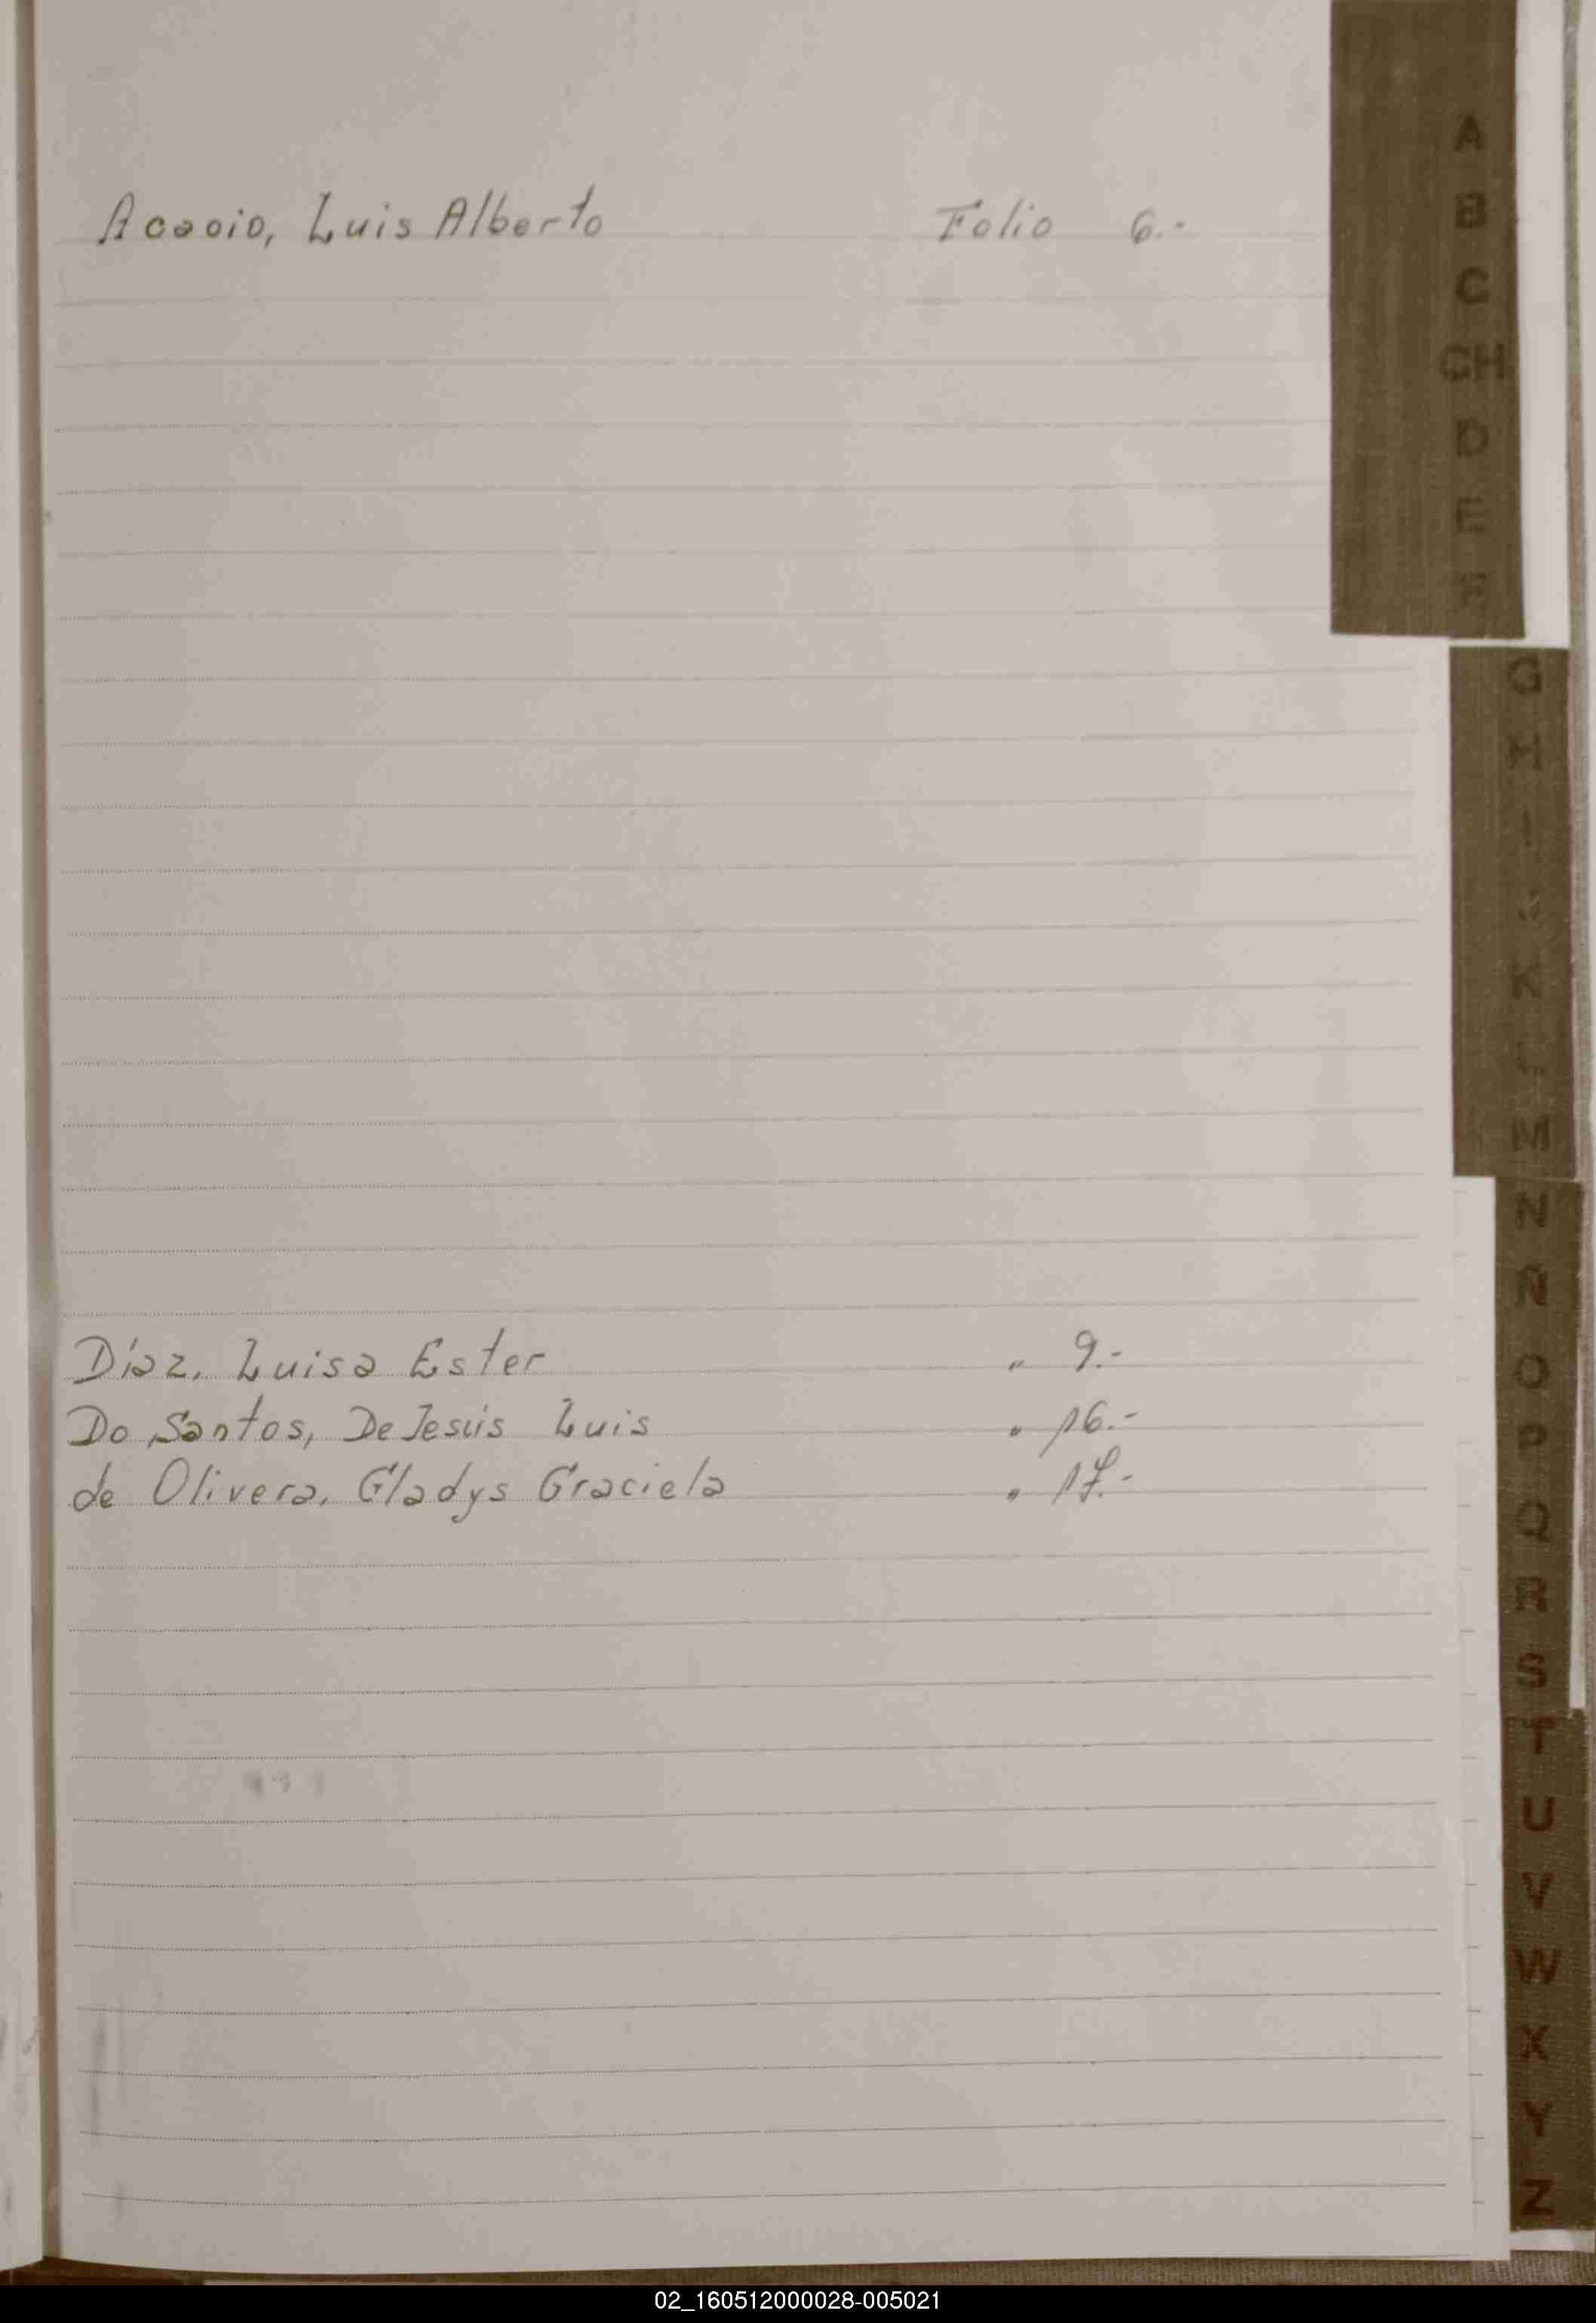 Acasio, Luis Alberto Folio 6.-
Díaz, Luisa Ester " 9.-
Do Santos, De Jesús Luis " 16.-
de Olivera, Gladys Graciela " 17.-
A
B
C
CH
D
E
F
G
H
I
K
L
M
N
Ñ
O
P
Q
R
S
T
U
V
W
X
Y
Z
02_160512000028-005021